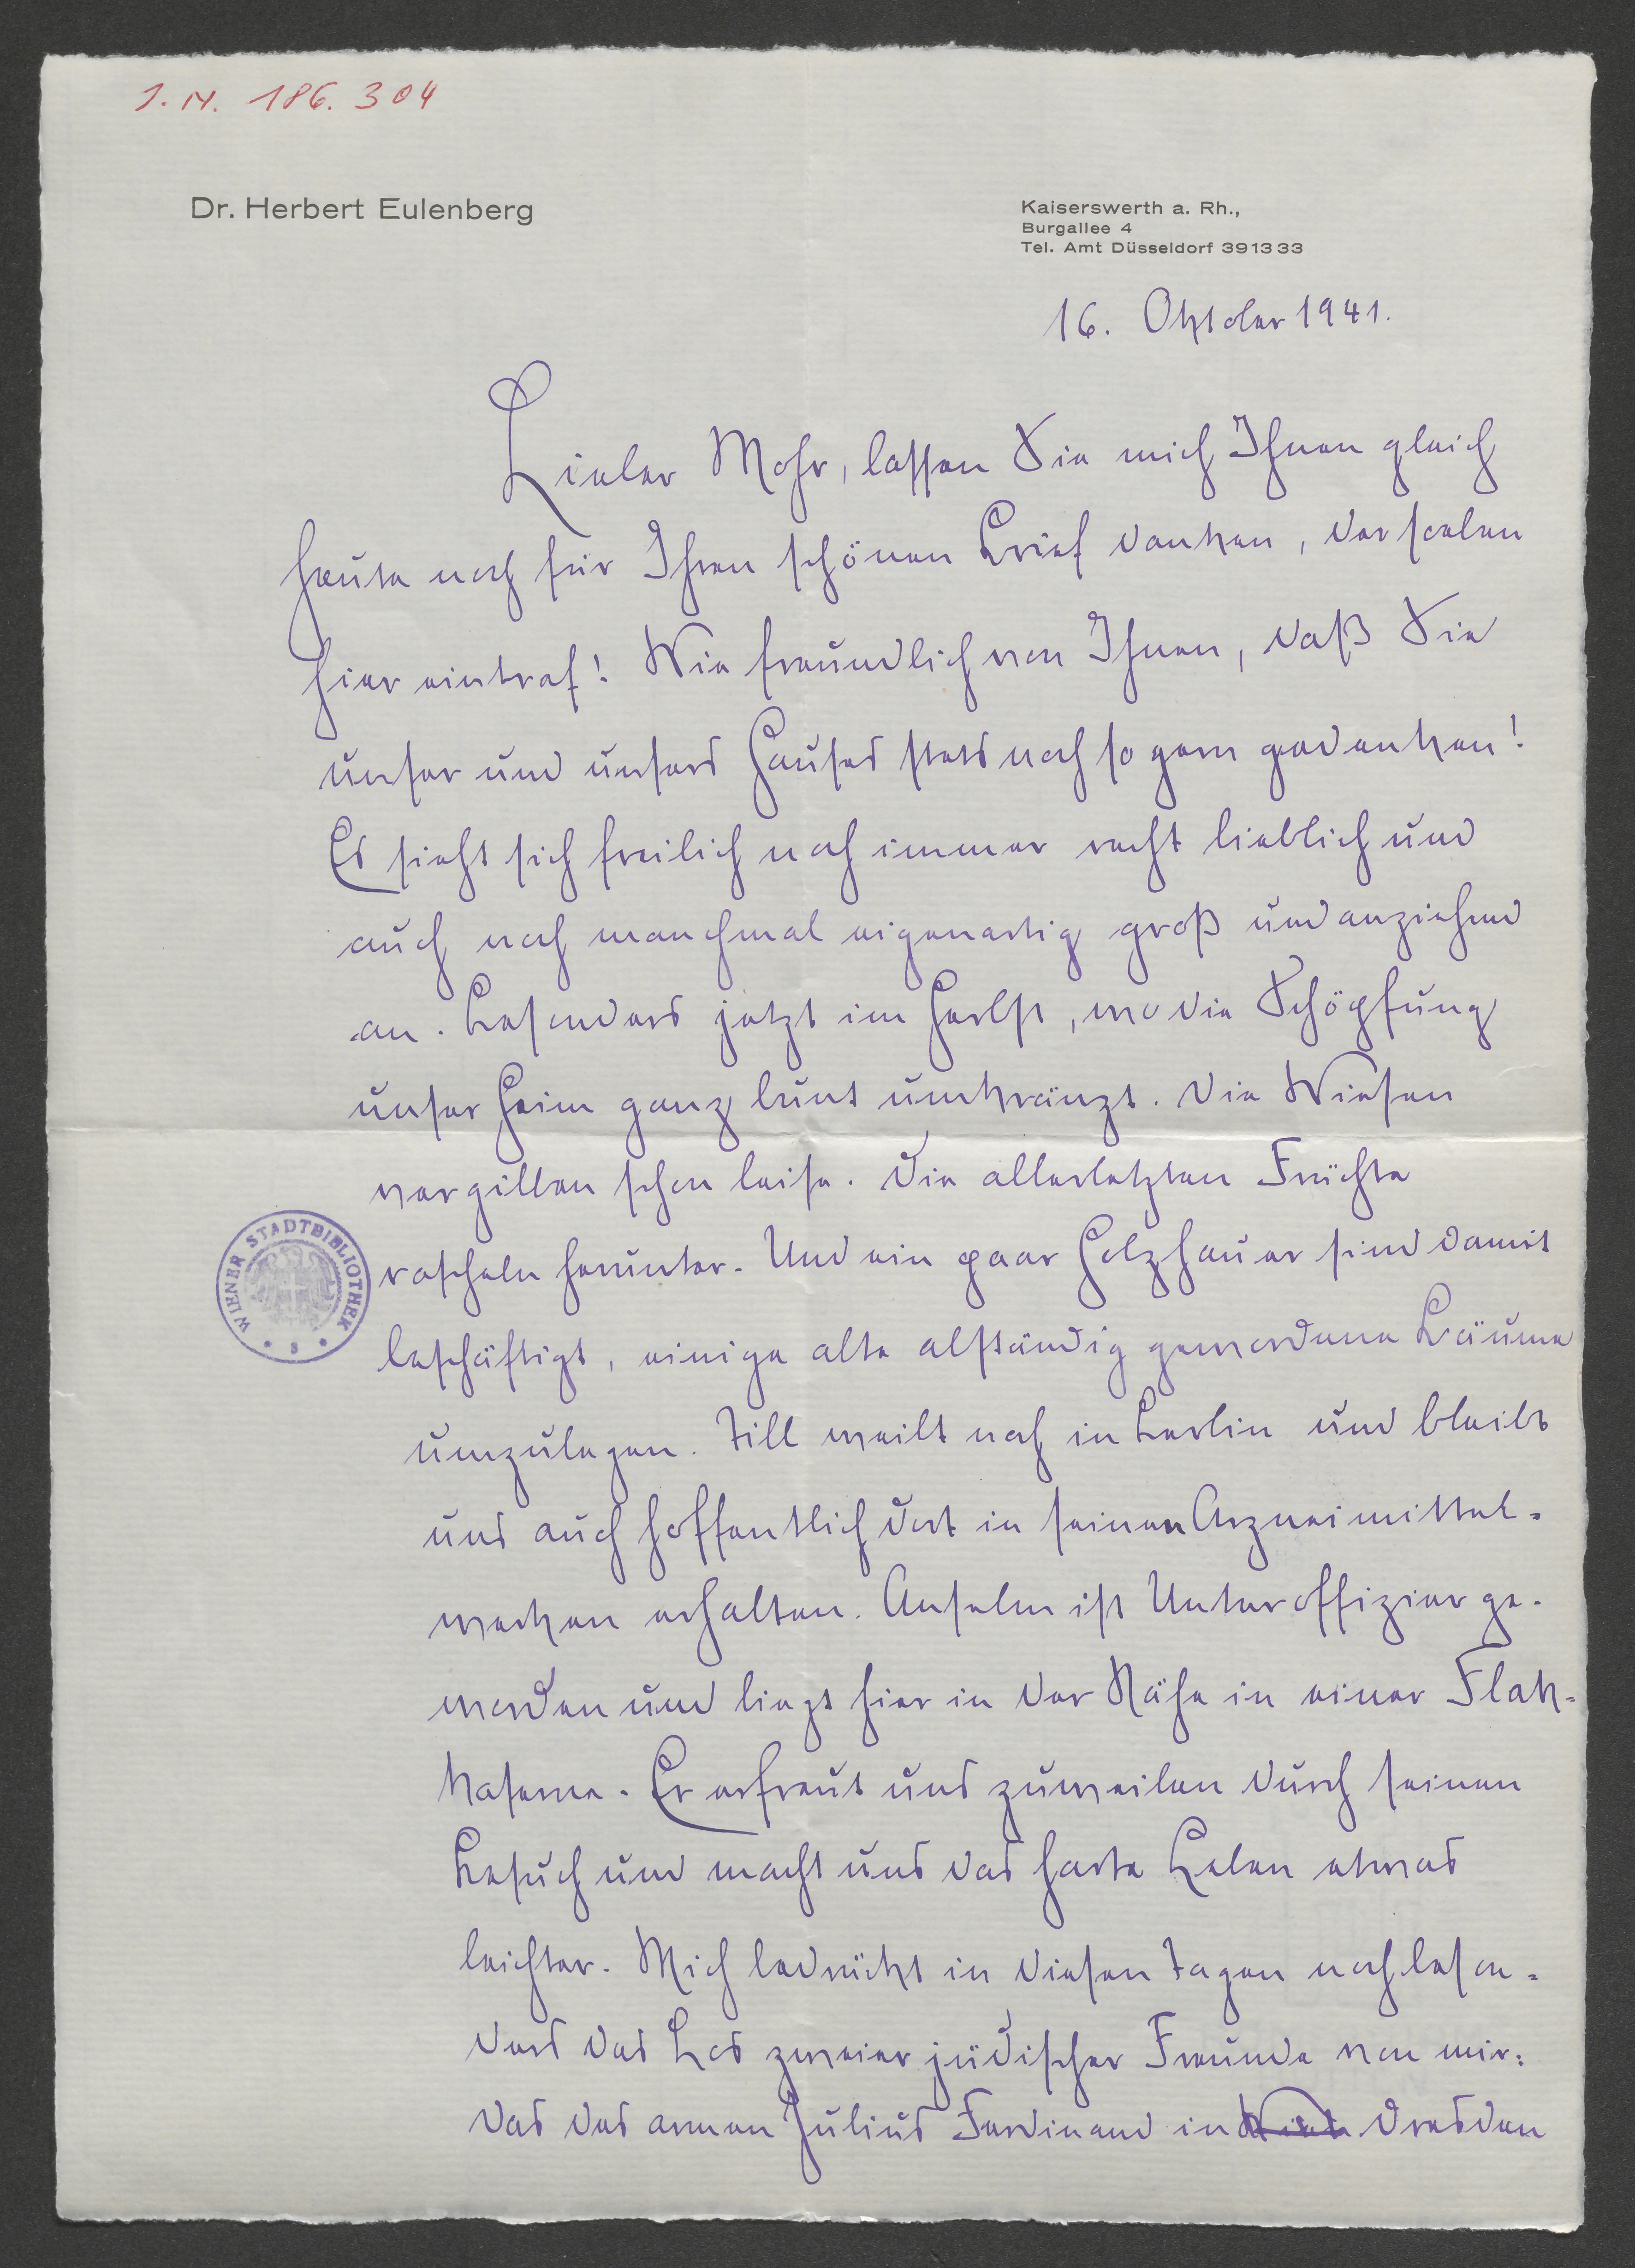 J. N. 186.304
Dr. Herbert Eulenberg
Kaiserswerth a. Rh.,
Burgallee 4
Tel. Amt Düsseldorf 391333
16. Oktober 1941.
Lieber Mohr, lassen Sie mich Ihnen gleich
heute noch für Ihren schönen Brief danken, der soeben
hier eintraf! Wie freundlich von Ihnen, daß Sie
unser und unsers Hauses stets noch so gern gedenken!
Es sieht sich freilich noch immer recht lieblich und
auch noch manchmal eigenartig groß und anziehend
an. Besonders jetzt im Herbst, wo die Schöpfung
unser Heim ganz bunt umkränzt. Die Wiesen
vergilben schon leise. Die allerletzten Früchte
rascheln herunter. Und ein paar Holzhauer sind damit
beschäftigt, einige alte abständig gewordene Bäume
umzulegen. Till weilt noch in Berlin und bleibt
uns auch hoffentlich dort in seinen Arzneimittel-
werken erhalten. Anselm ist Unteroffizier ge-
worden und liegt hier in der Nähe in einer Flak-
kaserne. Er erfreut uns zuweilen durch seinen
Besuch und macht uns das harte Leben etwas
leichter. Mich bedrückt in diesen Tagen noch beson-
ders das Los zweier jüdischer Freunde von mir:
Das des armen Julius Ferdinand in Dresden
WIENER STADTBIBLIOTHEK